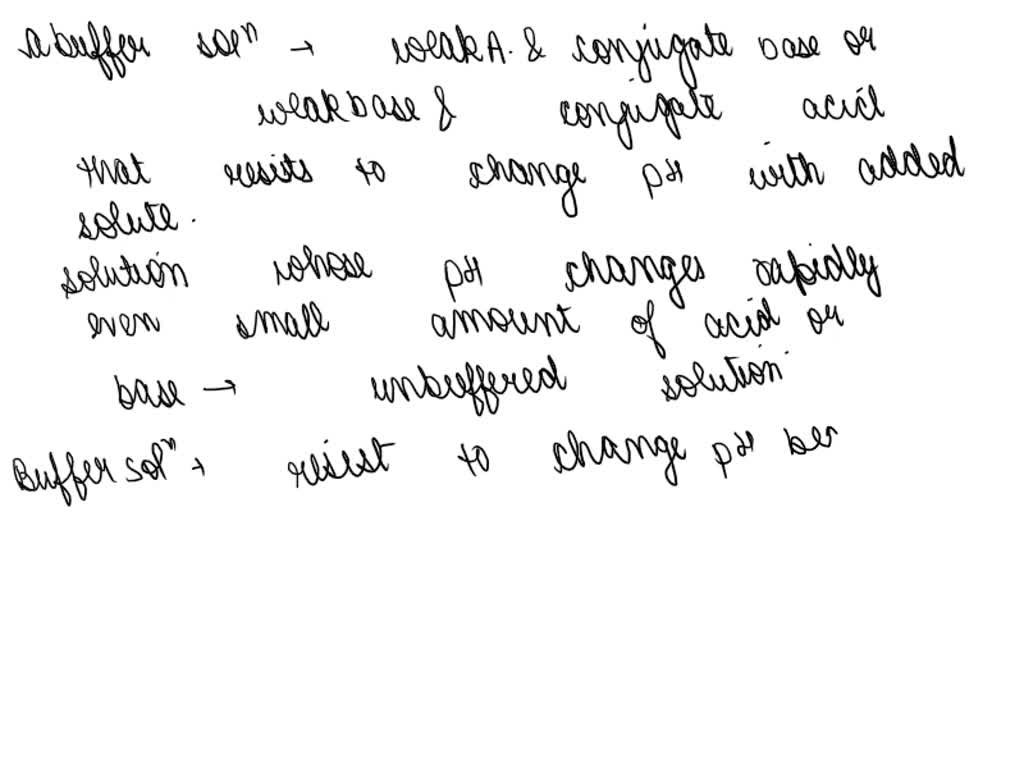 A buffer solⁿ → weak A. & conjugate base or
weak base & conjugate acid
that resits to change pH with added
solute.
solution whose pH changes rapidly
even small amount of acid or
base → unbuffered solution
Buffer solⁿ → resist to change pH bec